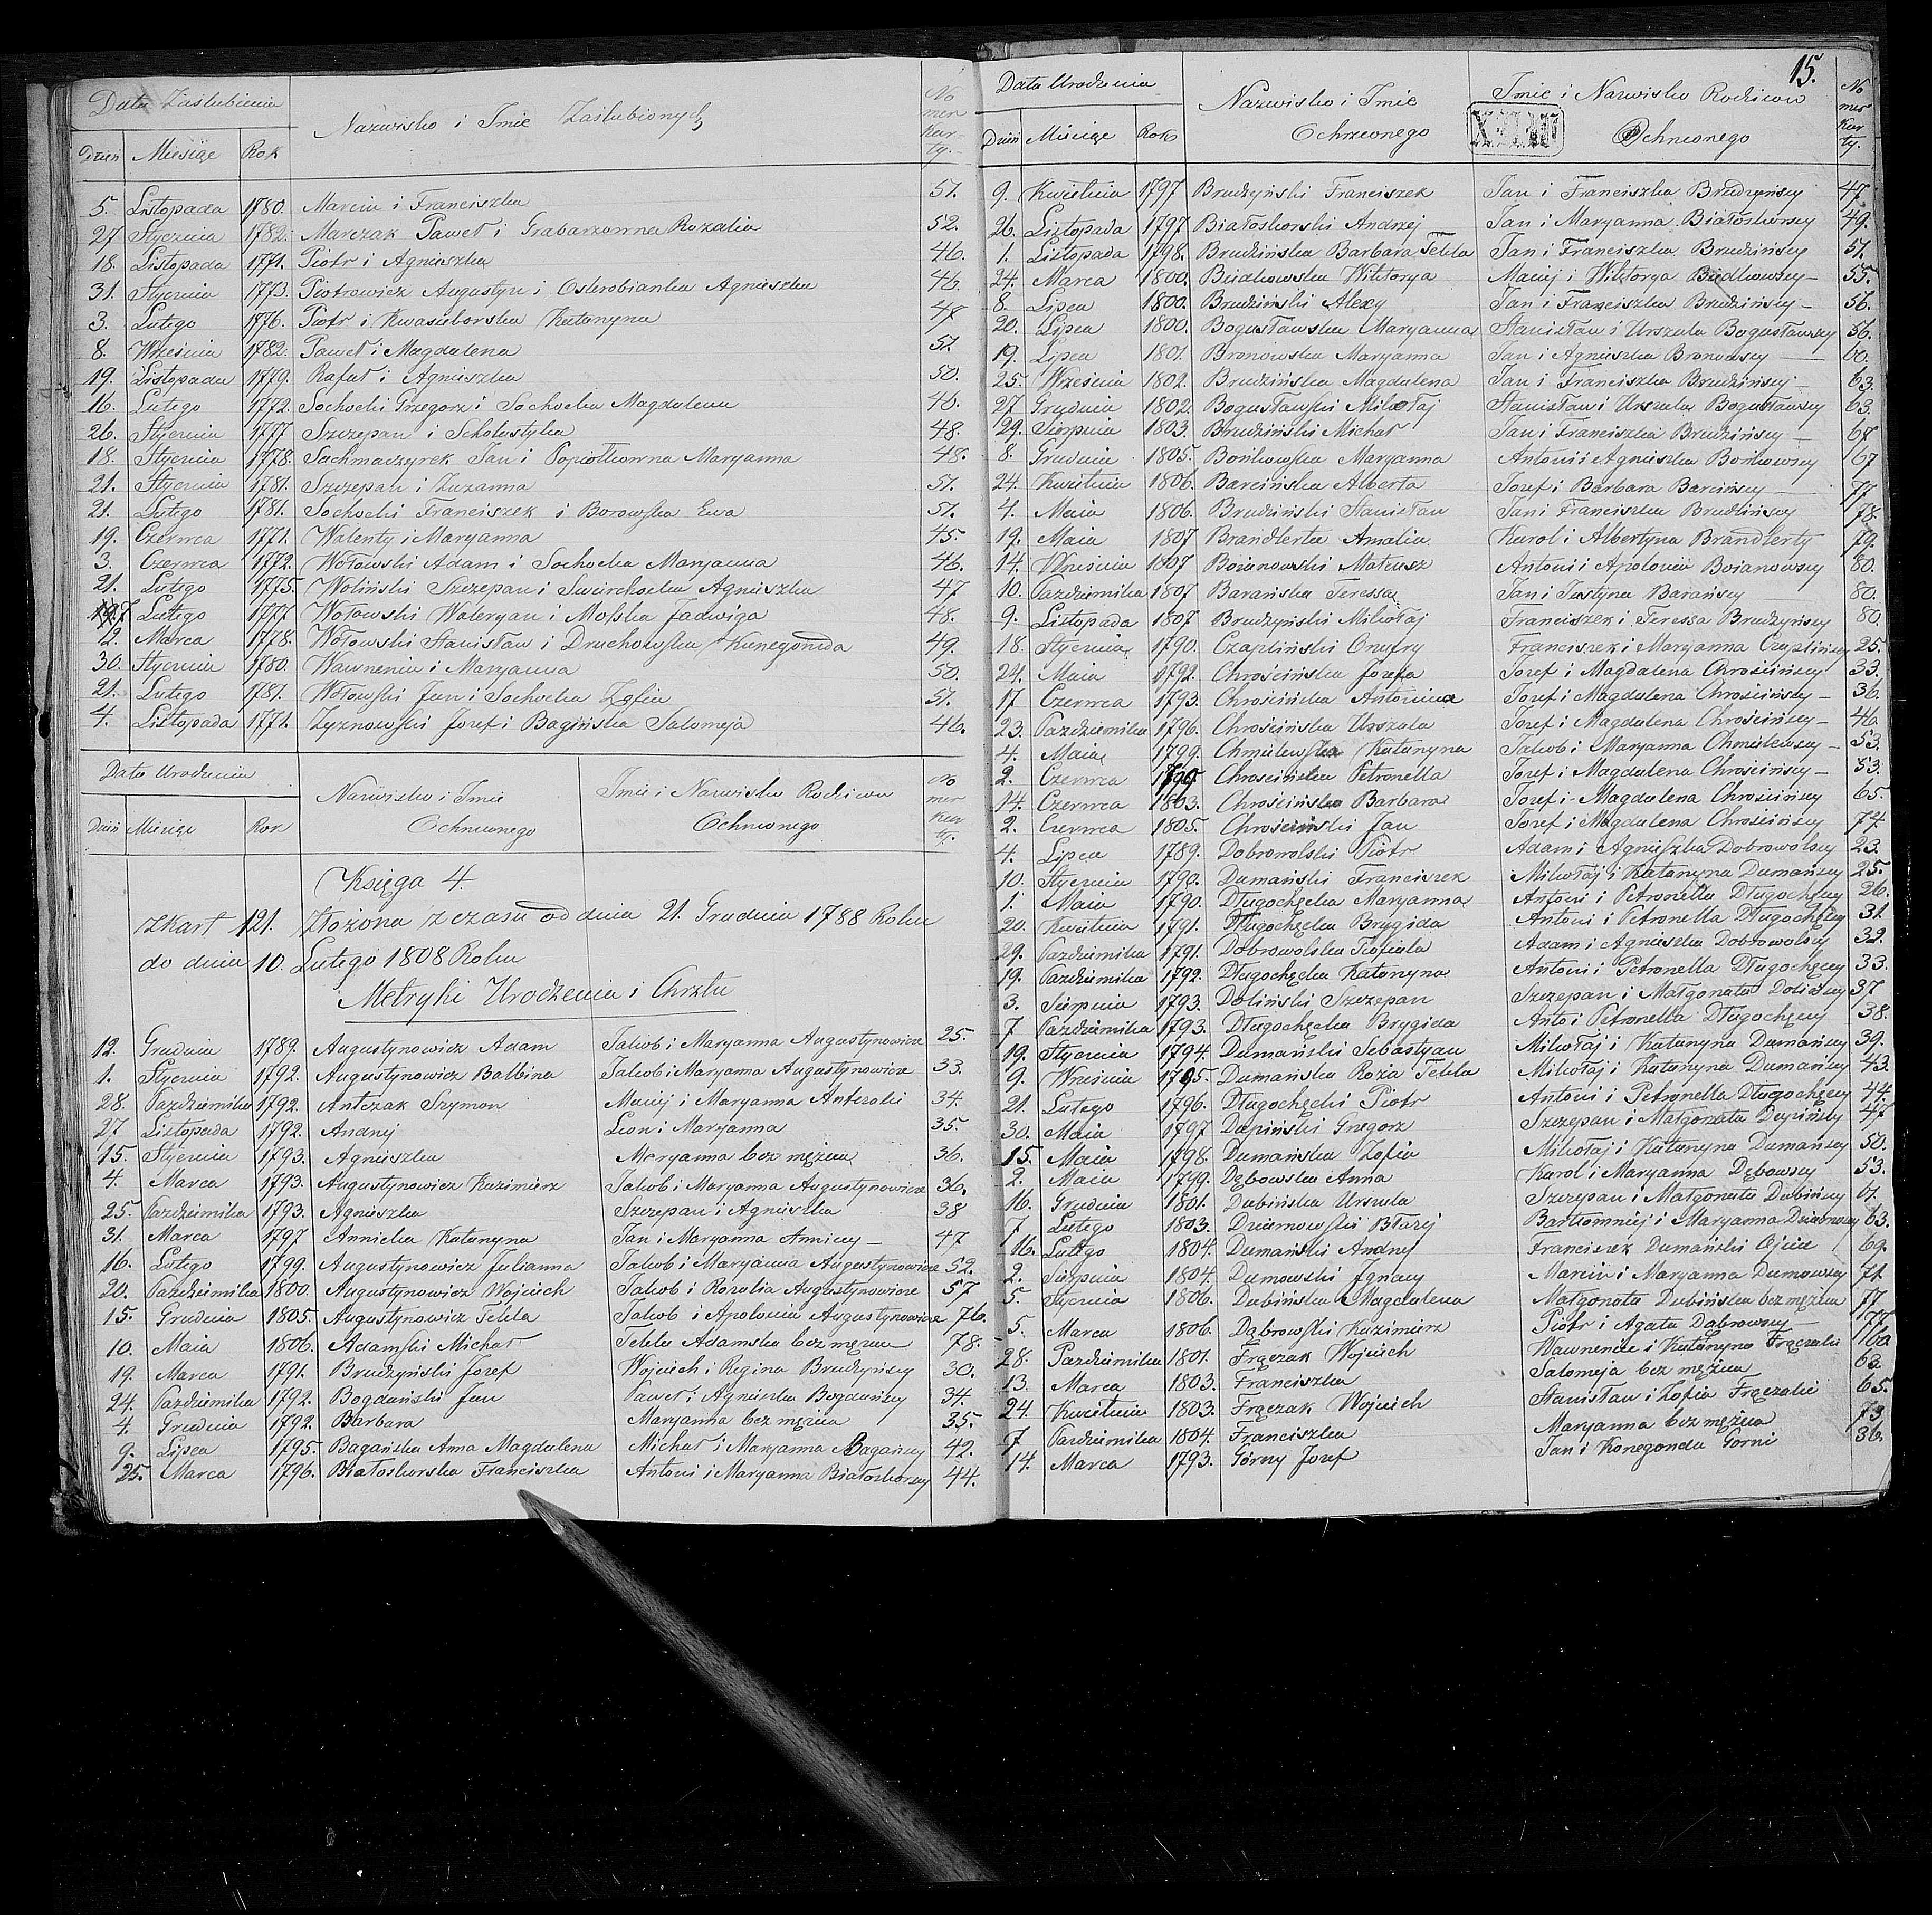 Data Zaślubienia
Nazwisko i Imie Zaślubionych
No mer kar- ty.
Dzień Miesiąc Rok
5. Listopada 1780. Marcin i Franciszka 51.
27 Stycznia 1782. Marczak Paweł i Grabarzowna Rozalia 52.
18. Listopada 1771. Piotr i Agnieszka 46.
31. Stycznia 1773. Piotrowicz Augustyn i Osterobianka Agnieszka 46.
3. Lutego 1776. Piotr i Kwasieborska Katarzyna 48
8. Września 1782. Paweł i Magdalena 51.
19. Listopada 1779. Rafał i Agnieszka 50.
16. Lutego 1772. Sochocki Grzegorz i Sochocka Magdalena 48.
26. Stycznia 1777 Szczepan i Scholastyka 48.
18. Stycznia 1778. Suchmaczyrek Jan i Popiołkowna Maryanna 48.
21. Stycznia 1781. Szczepan i Zuzanna 51.
21. Lutego 1781. Sochocki Franciszek i Borowska Ewa 51.
19. Czerwca 1771. Walenty i Maryanna 45.
3. Czerwca 1772. Wołowski Adam i Sochocka Maryanna 46.
21. Lutego 1775. Woliński Szczepan i Swierchocka Agnieszka 47
Lutego 1777 Wołowski Waleryan i Moska Jadwiga 48.
2. Marca 1778. Wołowski Stanisław i Druchowska Kunegonda 49.
30. Stycznia 1780. Wawrzeniec i Maryanna 50.
21. Lutego 1781. Wołowski Jan i Sochocka Zofia 51.
4. Listopada 1771. Zyznowski Jozef i Bagińska Salomeja 46.
Data Urodzenia
Nazwisko i Imie Ochrzconego
Imie i Nazwisko Rodzicow Ochrzconego
No mer kar ty.
Dzień Miesiąc Rok
Księga 4.
z Kart 121. złożona z czasu od dnia 21. Grudnia 1788 Roku
do dnia 10. Lutego 1808 Roku
Metryki Urodzenia i Chrztu
12. Grudnia 1789. Augustynowicz Adam Jakob i Maryanna Augustynowicze 25.
1. Stycznia 1792. Augustynowicz Balbina Jakob i Maryanna Augustynowicze 33.
28. Pazdziernika 1792. Antczak Szymon Maciej i Maryanna Antczaki 34.
27 Listopada 1792. Andrzej Leon i Maryanna 35.
15. Stycznia 1793. Agnieszka Maryanna bez męzna 36.
4. Marca 1793. Augustynowicz Kazimierz Jakob i Maryanna Augustynowicze 36.
25. Pazdziernika 1793. Agnieszka Szczepan i Agnieszka 38
31. Marca 1797 Annicka Katarzyna Jan i Maryanna Anniccy 47
16. Lutego 1799. Augustynowicz Julianna Jakob i Maryanna Augustynowicze 52.
20. Pazdziernika 1800. Augustynowicz Wojciech Jakob i Rozalia Augustynowicze 57
15. Grudnia 1805. Augustynowicz Tekla Jakob i Apolonia Augustynowicze 76.
10. Maia 1806. Adamski Michał Tekla Adamska bez męzna 78.
19. Marca 1791. Brudzyński Jozef Wojciech i Regina Brudzyńscy 30.
24. Pazdziernika 1792. Bogdański Jan Paweł i Agnieszka Bogdańscy 34.
4. Grudnia 1792. Barbara Maryanna bez męzna 35.
9. Lipca 1795. Bagańska Anna Magdalena Michał i Maryanna Bagańscy 42.
25. Marca 1796. Białoskorska Franciszka Antoni i Maryanna Białoskorscy 44.
15.
Data Urodzenia
Nazwisko i Imie Ochrzconego
Imie i Nazwisko Rodzicow Ochrzconego
No mer Kar ty.
Dzień Miesiąc Rok
9. Kwietnia 1797 Brudzyński Franciszek Jan i Franciszka Brudzyńscy 47.
26. Listopada 1797 Białoskorski Andrzej Jan i Maryanna Białoskorscy 49.
1. Listopada 1798. Brudzińska Barbara Tekla Jan i Franciszka Brudzińscy 51.
24. Marca 1800. Biedkowska Wiktorya Maciej i Wiktorya Biedkowscy 55.
8. Lipca 1800. Brudziński Alexy Jan i Franciszka Brudzińscy 56.
20. Lipca 1800. Bogusławska Maryanna Stanisław i Urszula Bogusławscy 56.
19. Lipca 1801. Bronowska Maryanna Jan i Agnieszka Bronowscy 60.
25. Września 1802. Brudzińska Magdalena Jan i Franciszka Brudzińscy 63.
27 Grudnia 1802. Bogusławski Mikołaj Stanisław i Urszula Bogusławscy 63.
29. Sierpnia 1803. Brudziński Michał Jan i Franciszka Brudzińscy 67
8. Grudnia 1805. Bońkowska Maryanna Antoni i Agnieszka Bońkowscy 67
24. Kwietnia 1806. Barcińska Alberta Jozef i Barbara Barcińscy 77
4. Maia 1806. Brudziński Stanisław Jan i Franciszka Brudzińscy 78.
19. Maia 1807 Brandlerta Amalia Karol i Albertyna Brandlerty 79.
14. Września 1807 Boianowski Mateusz Antoni i Apolonia Boianowscy 80.
10. Pazdziernika 1807 Barańska Teressa Jan i Justyna Barańscy 80.
9. Listopada 1807 Brudzyński Mikołaj Franciszek i Teressa Brudzyńscy 80.
18. Stycznia 1790. Czapliński Onufry Franciszek i Maryanna Czaplińscy 25.
24. Maia 1792. Chrościńska Jozefa Jozef i Magdalena Chrościńscy 33.
17 Czerwca 1793. Chrościńska Antonina Jozef i Magdalena Chrościńscy 36.
23. Pazdziernika 1796. Chrościńska Urszula Jozef i Magdalena Chrościńscy 46.
4. Maia 1799. Chmielewska Katarzyna Jakob i Maryanna Chmielewscy 53.
2. Czerwca 1799 Chrościńska Petronella Jozef i Magdalena Chrościńscy 53.
14. Czerwca 1803. Chrościńska Barbara Jozef i Magdalena Chrościńscy 65.
2. Czerwca 1805. Chrościński Jan Jozef i Magdalena Chrościńscy 74.
4. Lipca 1789. Dobrowolski Piotr Adam i Agnieszka Dobrowolscy 23.
10. Stycznia 1790. Dumański Franciszek Mikołaj i Katarzyna Dumańscy 25.
1. Maia 1790. Długochęcka Maryanna Antoni i Petronella Długochęccy 26.
20. Kwietnia 1791. Długochęcka Brygida Antoni i Petronella Długochęccy 31.
29. Pazdziernika 1791. Dobrowolska Adam i Agnieszka Dobrowolscy 32.
19. Pazdziernika 1792. Długochęcka Katarzyna Antoni i Petronella Długochęccy 33.
3. Sierpnia 1793. Doliński Szczepan Szczepan i Małgorzata Dolińscy 37
7 Pazdziernika 1793. Długochęcka Brygida Anto i Petronella Długochęccy 38.
19. Stycznia 1794. Dumański Sebastyan Mikołaj i Katarzyna Dumańscy 39.
9. Września 1795. Dumańska Roża Tekla Mikołaj i Katarzyna Dumańscy 43.
21. Lutego 1796. Długochęcki Piotr Antoni i Petronella Długochęccy 44.
30. Maia 1797 Depiński Grzegorz Szczepan i Małgorzata Depińscy 47
15. Maia 1798. Dumańska Zofia Mikołaj i Katarzyna Dumańscy 50.
2. Maia 1799. Dębowska Anna Karol i Maryanna Dębowscy 53.
16. Grudnia 1801. Dubińska Urszula Szczepan i Małgorzata Dubińscy 61.
7 Lutego 1803. Dziarnowski Błażej Bartłomniej i Maryanna Dziarnowscy 63.
16. Lutego 1804. Dumański Andrzej Franciszek Dumański Ojciec 69.
2. Sierpnia 1804. Dumowski Ignacy Marcin i Maryanna Dumowscy 71.
5. Stycznia 1806. Dubińska Magdalena Małgorzata Dubińska bez męzka 77
5. Marca 1806. Dąbrowski Kazimierz Piotr i Agata Dąbrowscy 77.
28. Pazdziernika 1801. Frączak Wojciech Wawrzeniec i Katarzyna Frączaki 60.
13. Marca 1803. Franciszka Salomeja bez męzna 63.
24. Kwietnia 1803. Frączak Wojciech Stanisław i Zofia Frączaki 65.
7 Pazdziernika 1804. Franciszka Maryanna bez męzna 73.
14. Marca 1793. Górny Jozef Jan i Konegonda Gorni 36.